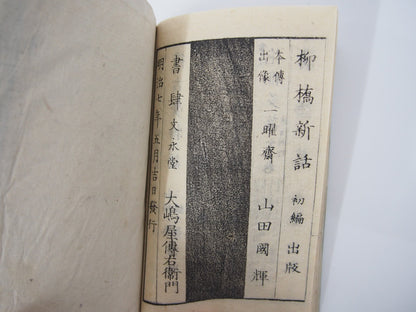 柳橋新話 初編 出版
本傳
出像 一曜齋 山田國輝
書肆 文永堂 大嶋屋傳右衞門
明治七年五月吉日發行